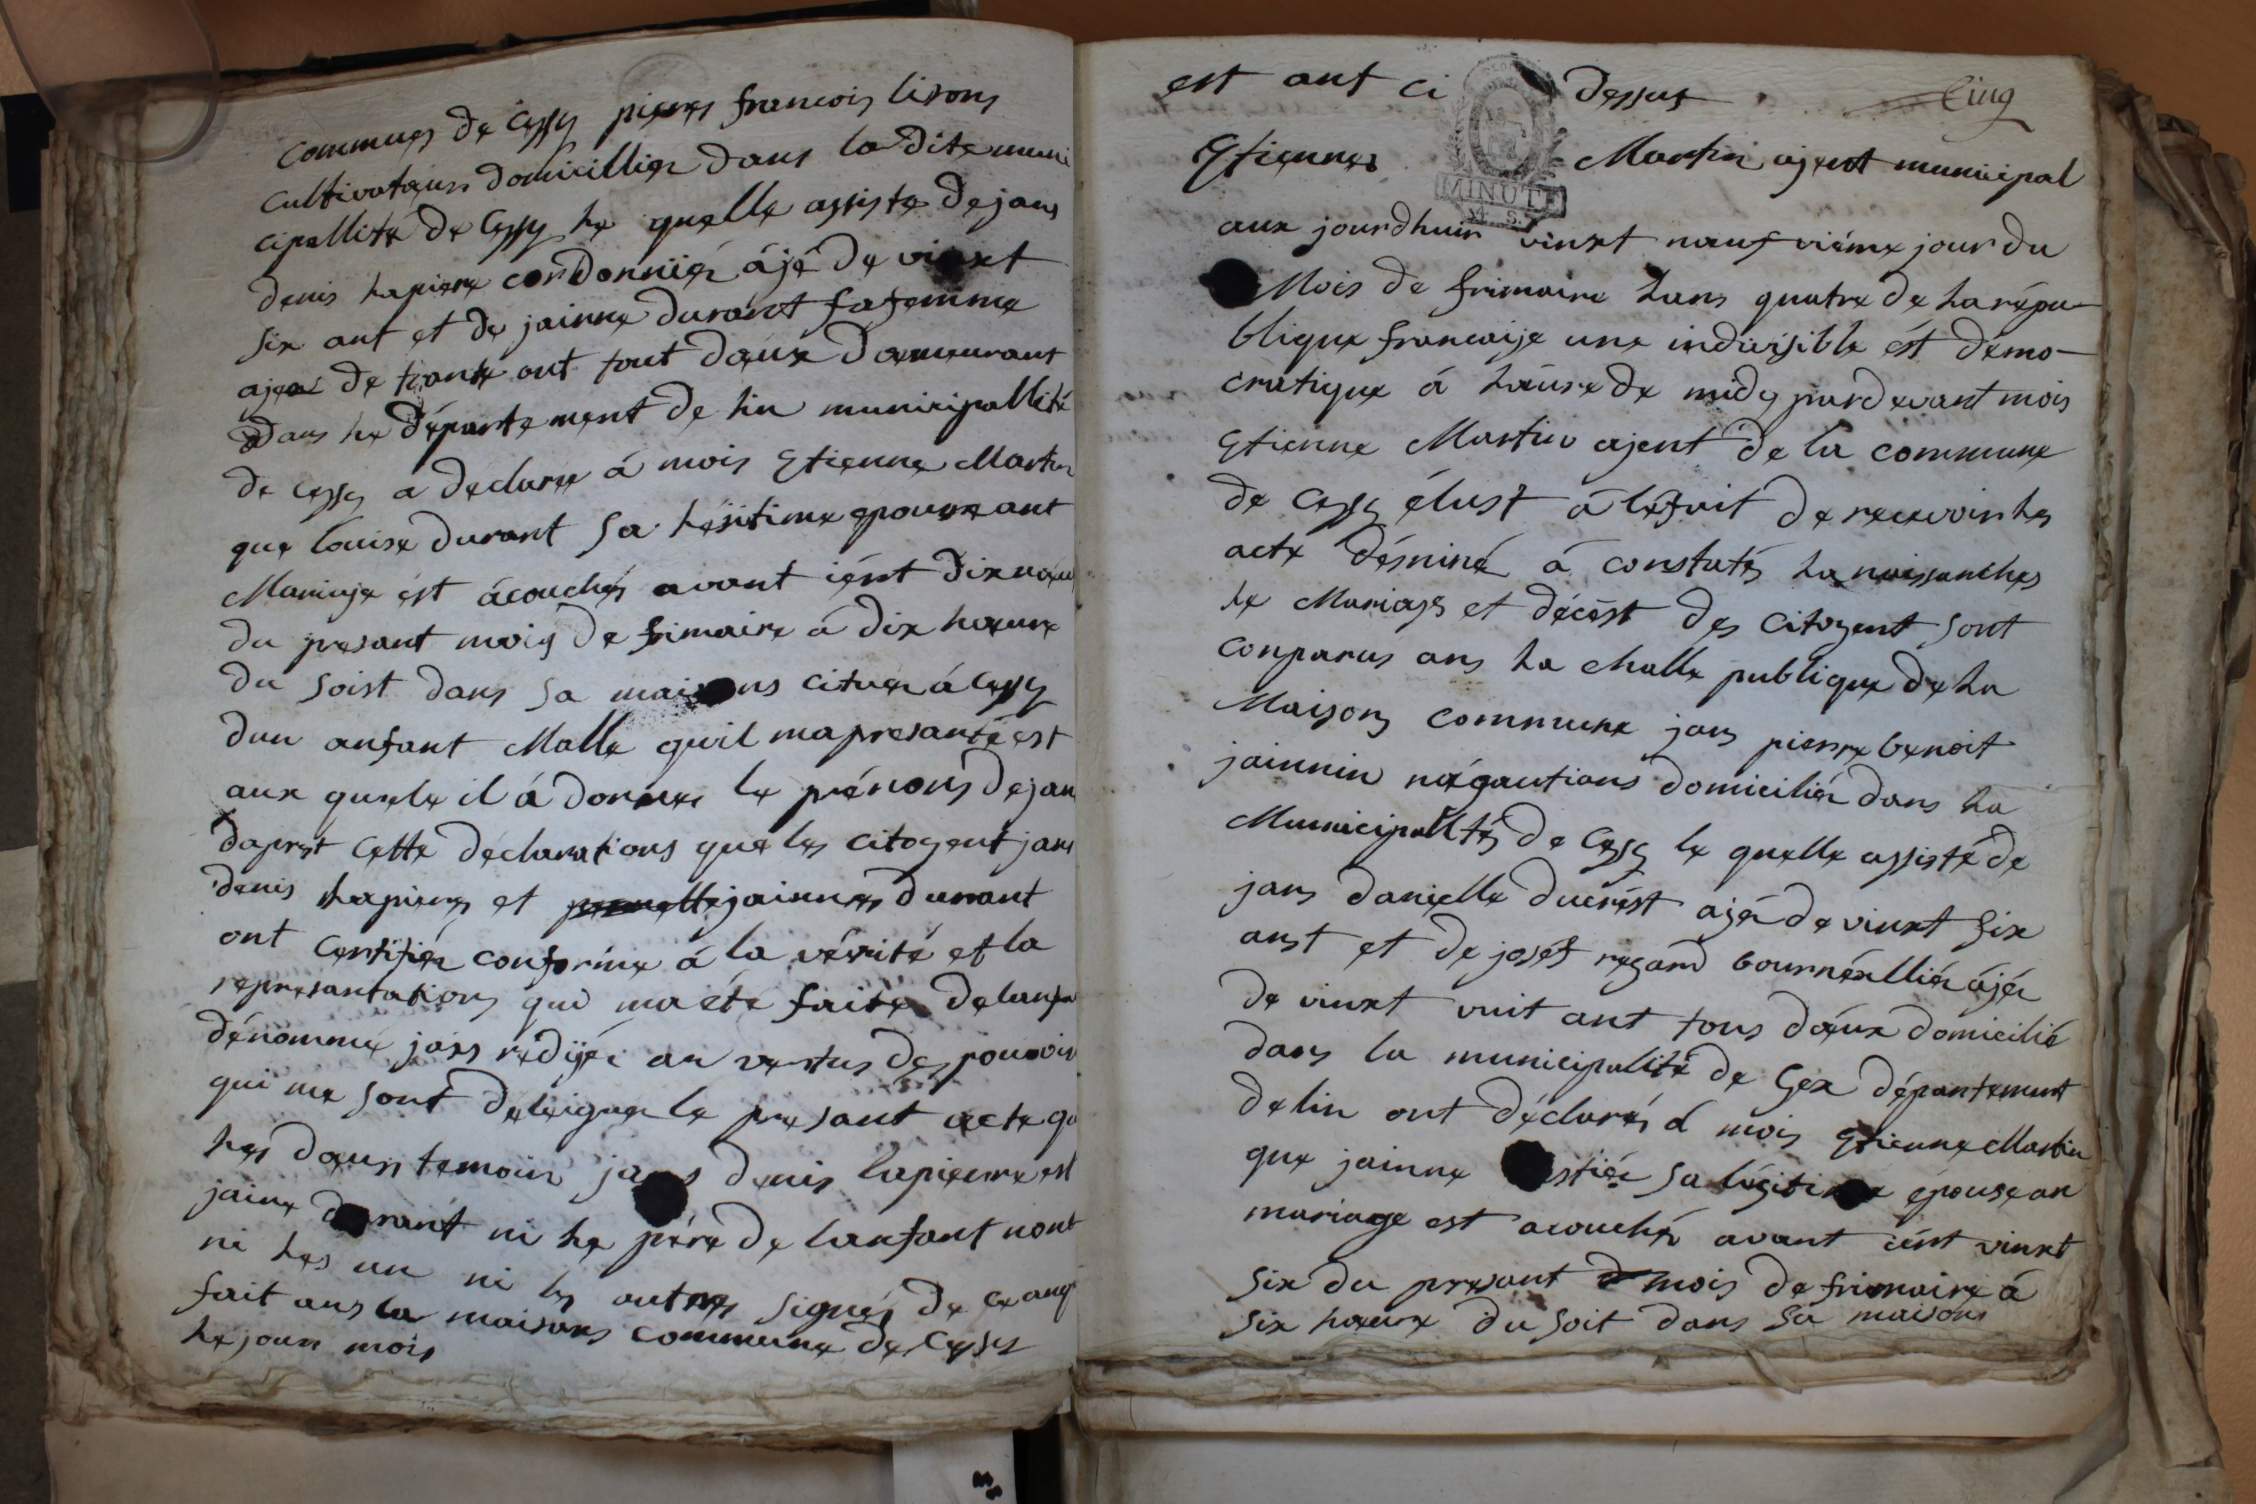 communes de Cessy pierres francois lisons
cultivateurs domicillier dans la dite muni
cipallité de Cessy le quelle assiste de jans
denis lapiere cordonnier âjé de vinxt
six ant et de jainne durant sa femme
ajeai de trante ant tout daux dameurant
dans le département de lin municipallité
de Cessy a declare á mois Etienne Martin
que louise durant sa légitime epouse ant
Mariaje est ácouchés avant iérst dixneuf
du presant mois de frimaire á dix heure
du soist dans sa maisons citués á Cessy
dun anfant Malle quil ma presanté est
aux quele il á donnes le prénons de jan
daprest cette déclarations que les citoyent jans
denis lapieres et jainnes durant
ont certifiér conforme á la vérité et la
represantations qui ma été faite de lanfan
dénommé jais rédijér an vertus des pouvoir
qui me sont deleiguer le presant acte qu
les daux temoin jans denis lapierre est
jaine durant ni le pére de lanfant nont
ni les un ni les autres signés de ce anqu
fait ans la maisons commune de Cessy
le jour mois
est ant ci dessus Cinq
Etiennes Martin ajent municipal
MINUTE
aux jourdhuir vinxt nauf viéme jour du
Mois de frimaire lans quatre de la répu-
blique francaise une indivisible ést démo-
cratique á háure de midy pardevant mois
Etienne Martin ajent de la commune
de Cessy élust á léfait de recevoir les
acte désniné á constatés la naissanches
le Mariages et décést des citoyent sont
conparus ans la challe publique de la
Maisons commune jans pierre benoit
jainnin négautians domiciliér dans la
Municipallités de Cessy le quelle assisté de
jans danielle ducrést ajér de vinxt six
anst et de joséf regard bournéalliér ájér
de vinxt vuit ant tous dáux domicilié
dans la municipalité de Gex département
de lin ont déclarés á mois Etienne Martin
que jainne sa légitime épouse an
mariage est acouchér avant iérst vinxt
six du presant mois de frimaire á
six haeure du soit dans sa maisons